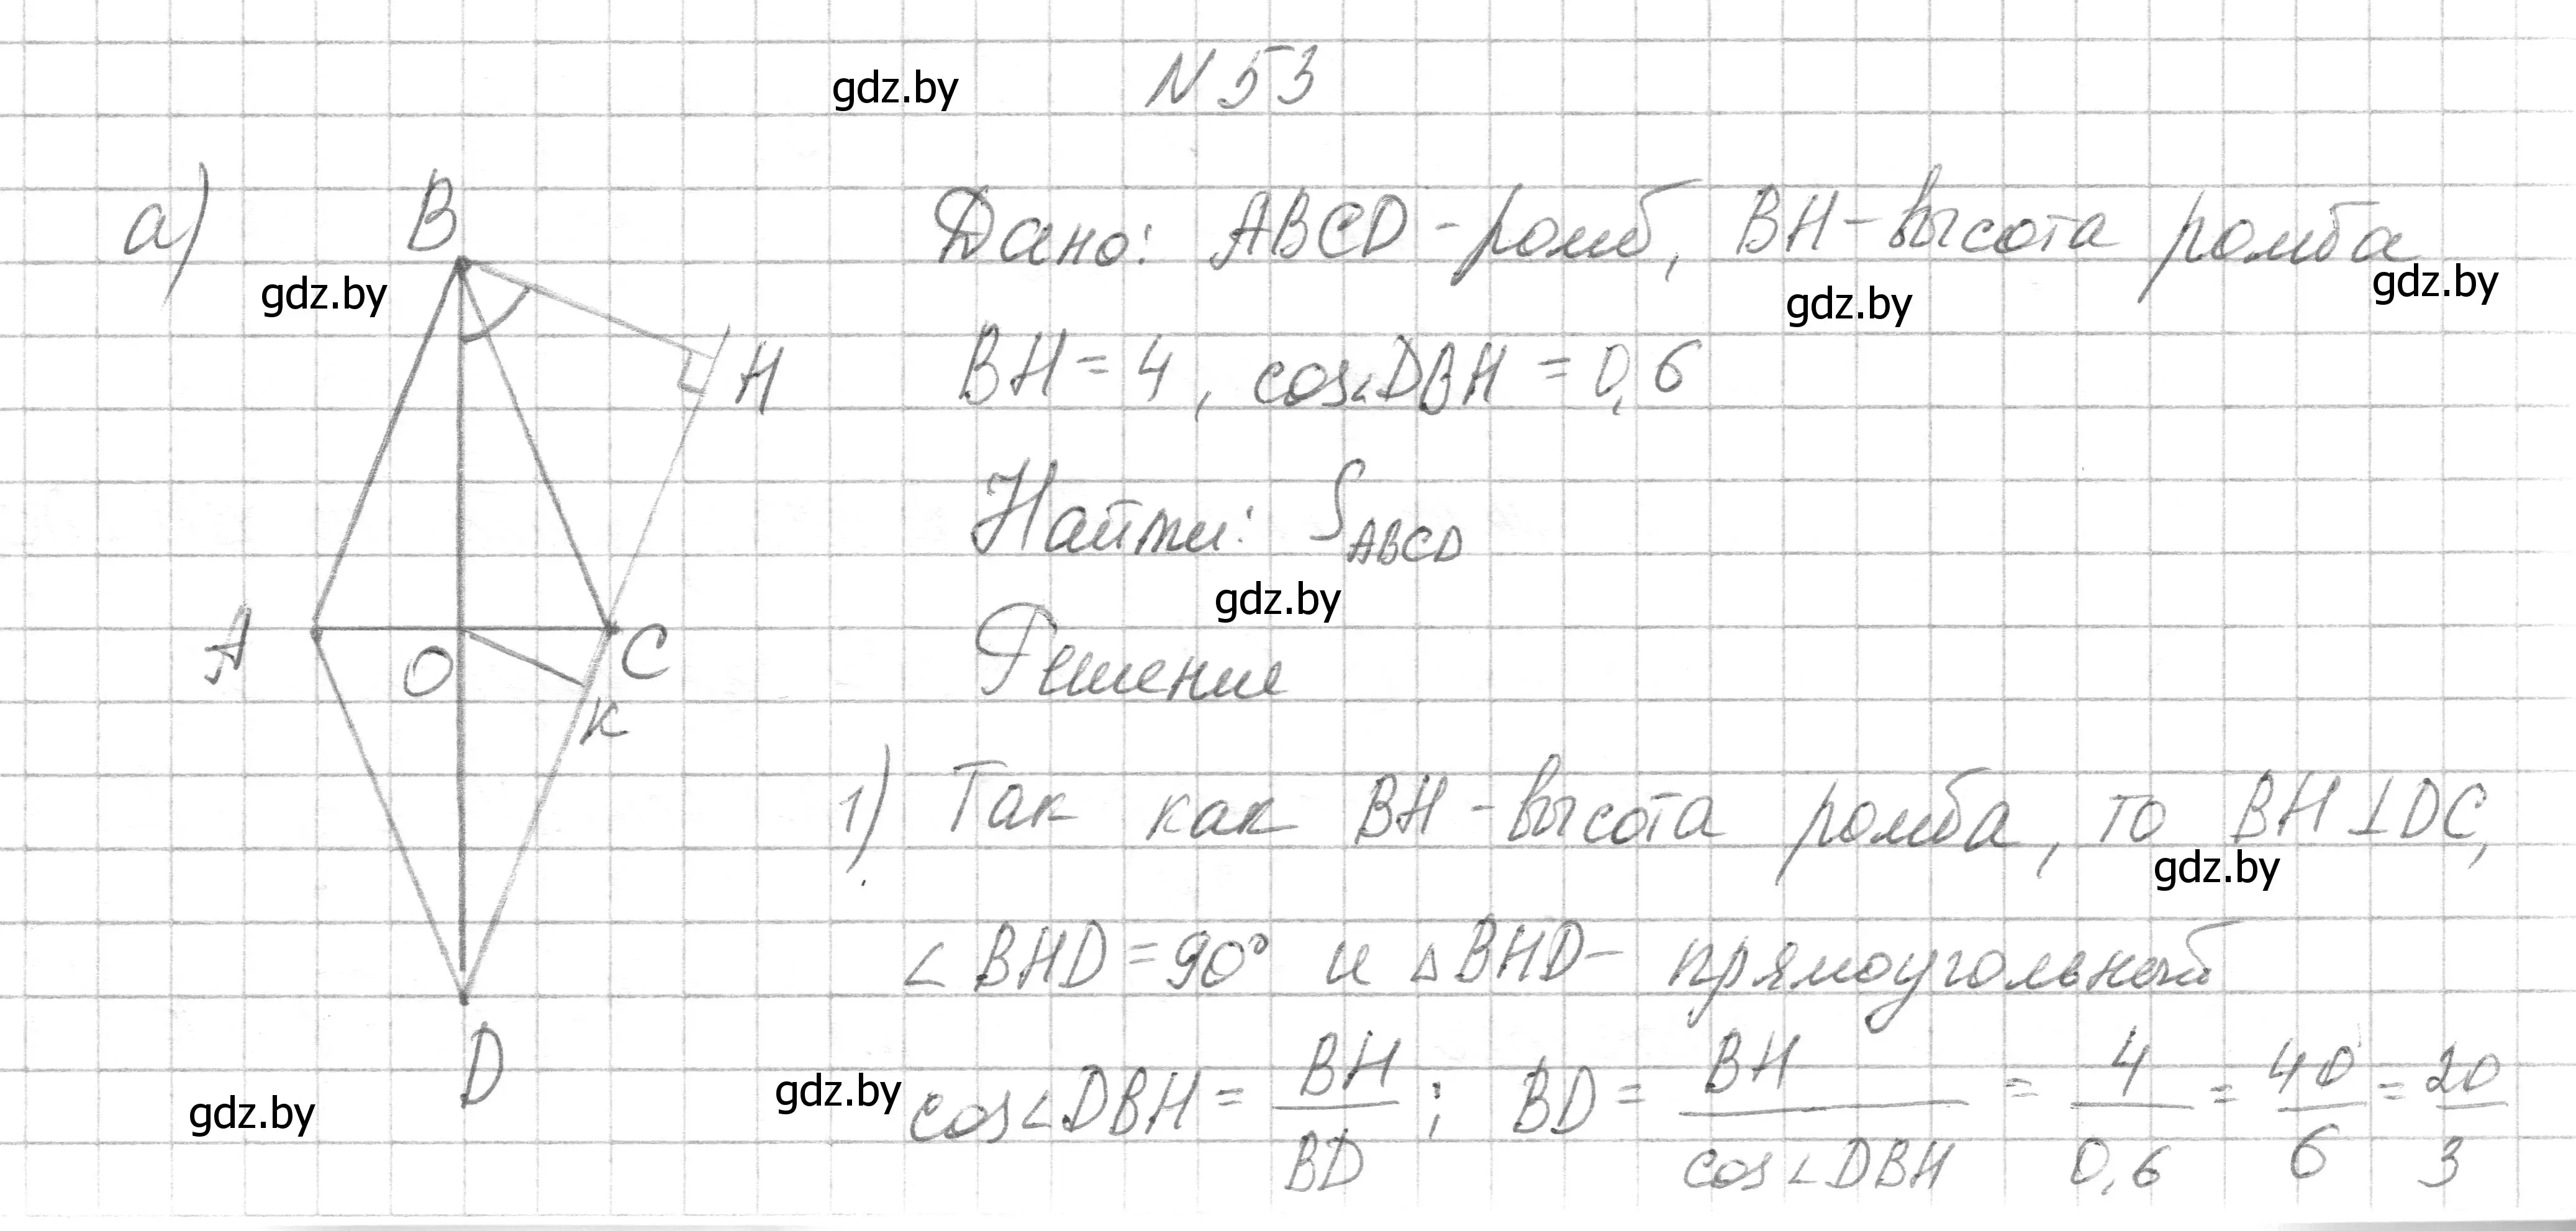 gdz.by
N 53
а)
B
Дано: ABCD - ромб, BH - высота ромба
gdz.by
gdz.by
gdz.by
H
BH = 4, cos∠DBH = 0,6
Найти: S_ABCD
gdz.by
A
O
C
K
Решение
1) Так как BH - высота ромба, то BH ⊥ DC,
gdz.by
∠BHD = 90° и △BHD - прямоугольный
D
gdz.by
gdz.by
cos∠DBH = BH/BD ; BD = BH/cos∠DBH = 4/0,6 = 40/6 = 20/3